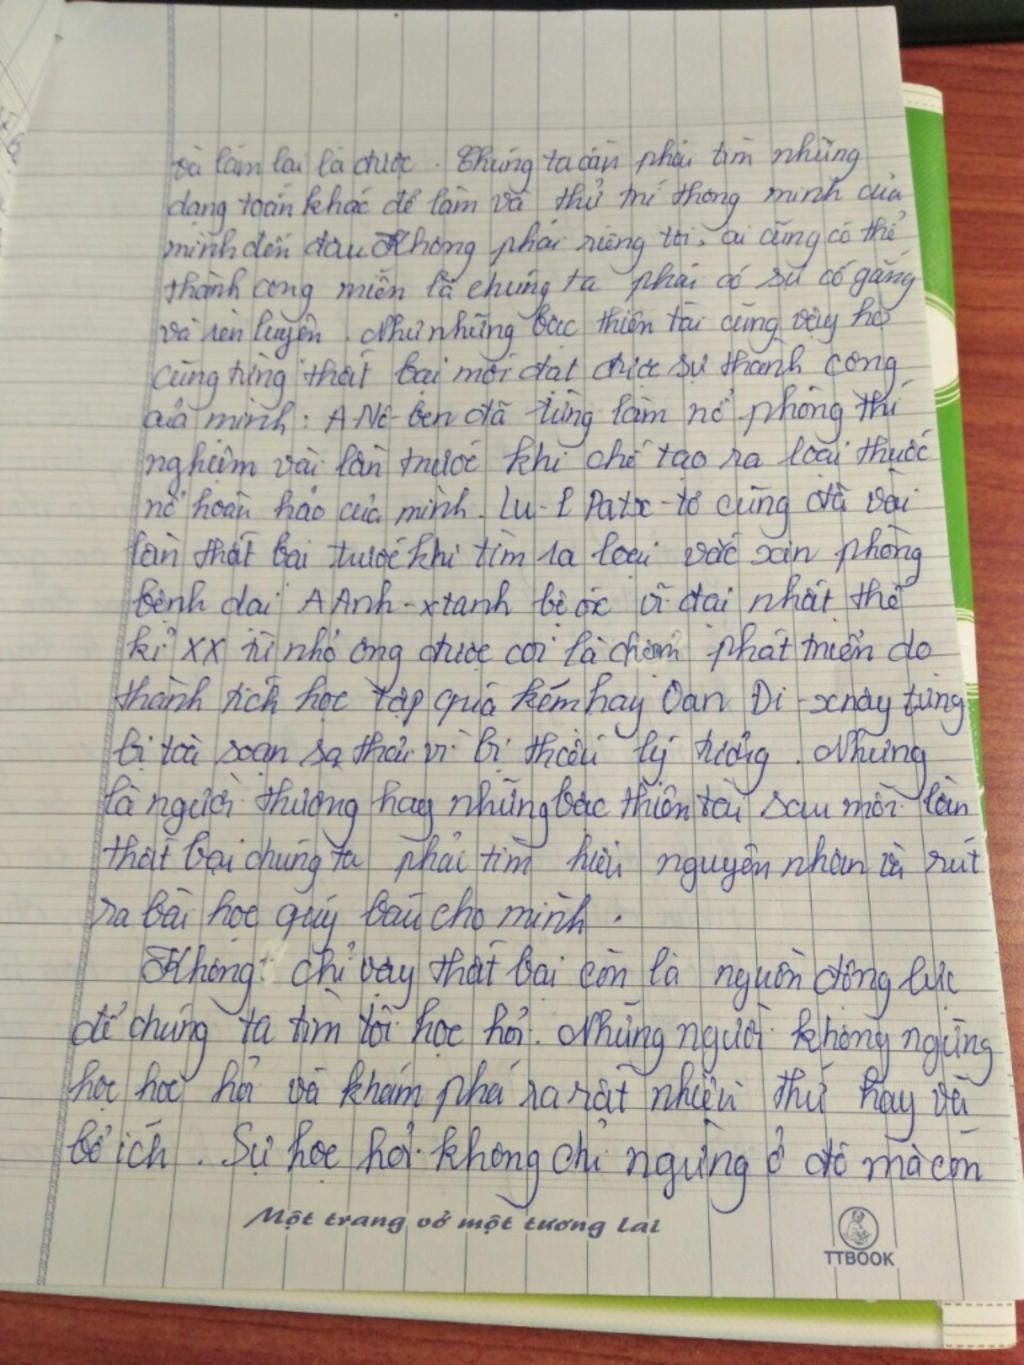 và làm lại là được. Chúng ta cần phải tìm những
dạng toán khác để làm và thử trí thông minh của
mình đến đâu. Không phải riêng tôi, ai cũng có thể
thành công miễn là chúng ta phải có sự cố gắng
và rèn luyện. Như những bậc thiên tài cũng vậy họ
cũng từng thất bại mới đạt được sự thành công
của mình: A Nô-ben đã từng làm nổ phòng thí
nghiệm vài lần trước khi chế tạo ra loại thuốc
nổ hoàn hảo của mình. Lu-I Patx-tơ cũng đã vài
lần thất bại trước khi tìm ra loại vắc xin phòng
bệnh dại A Anh-xtanh bộ óc vĩ đại nhất thế
kỉ XX từ nhỏ ông được coi là chậm phát triển do
thành tích học tập quá kém hay Oan Di-xnây từng
bị toà soạn sa thải vì bị thiếu lý tưởng. Nhưng
là người thường hay những bậc thiên tài sau mỗi lần
thất bại chúng ta phải tìm hiểu nguyên nhân và rút
ra bài học quý báu cho mình.
Không chỉ vậy thất bại còn là nguồn động lực
để chúng ta tìm tòi học hỏi. Những người không ngừng
học học hỏi và khám phá ra rất nhiều thứ hay và
bổ ích. Sự học hỏi không chỉ ngừng ở đó mà còn
Một trang vở một tương lai
TTBOOK